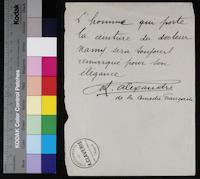 L'homme qui porte
la ceinture du docteur
Namy sera toujours
remarqué pour son
élégance
R. Alexandre
de la Comédie Française
Kodak
KODAK Color Control Patches